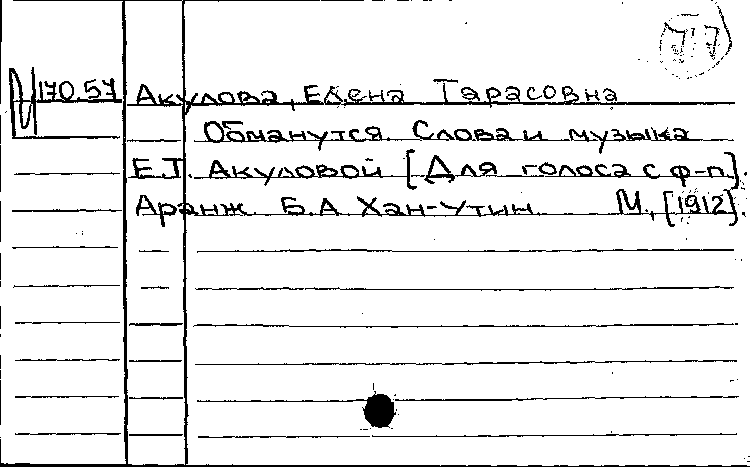 М 170.57 Акулова, Елена Тарасовна
Обманутся. Слова и музыка
Е.Т. Акуловой [Для голоса с ф-п].
Аранж. Б.А. Хан-Утин. М., [1912].